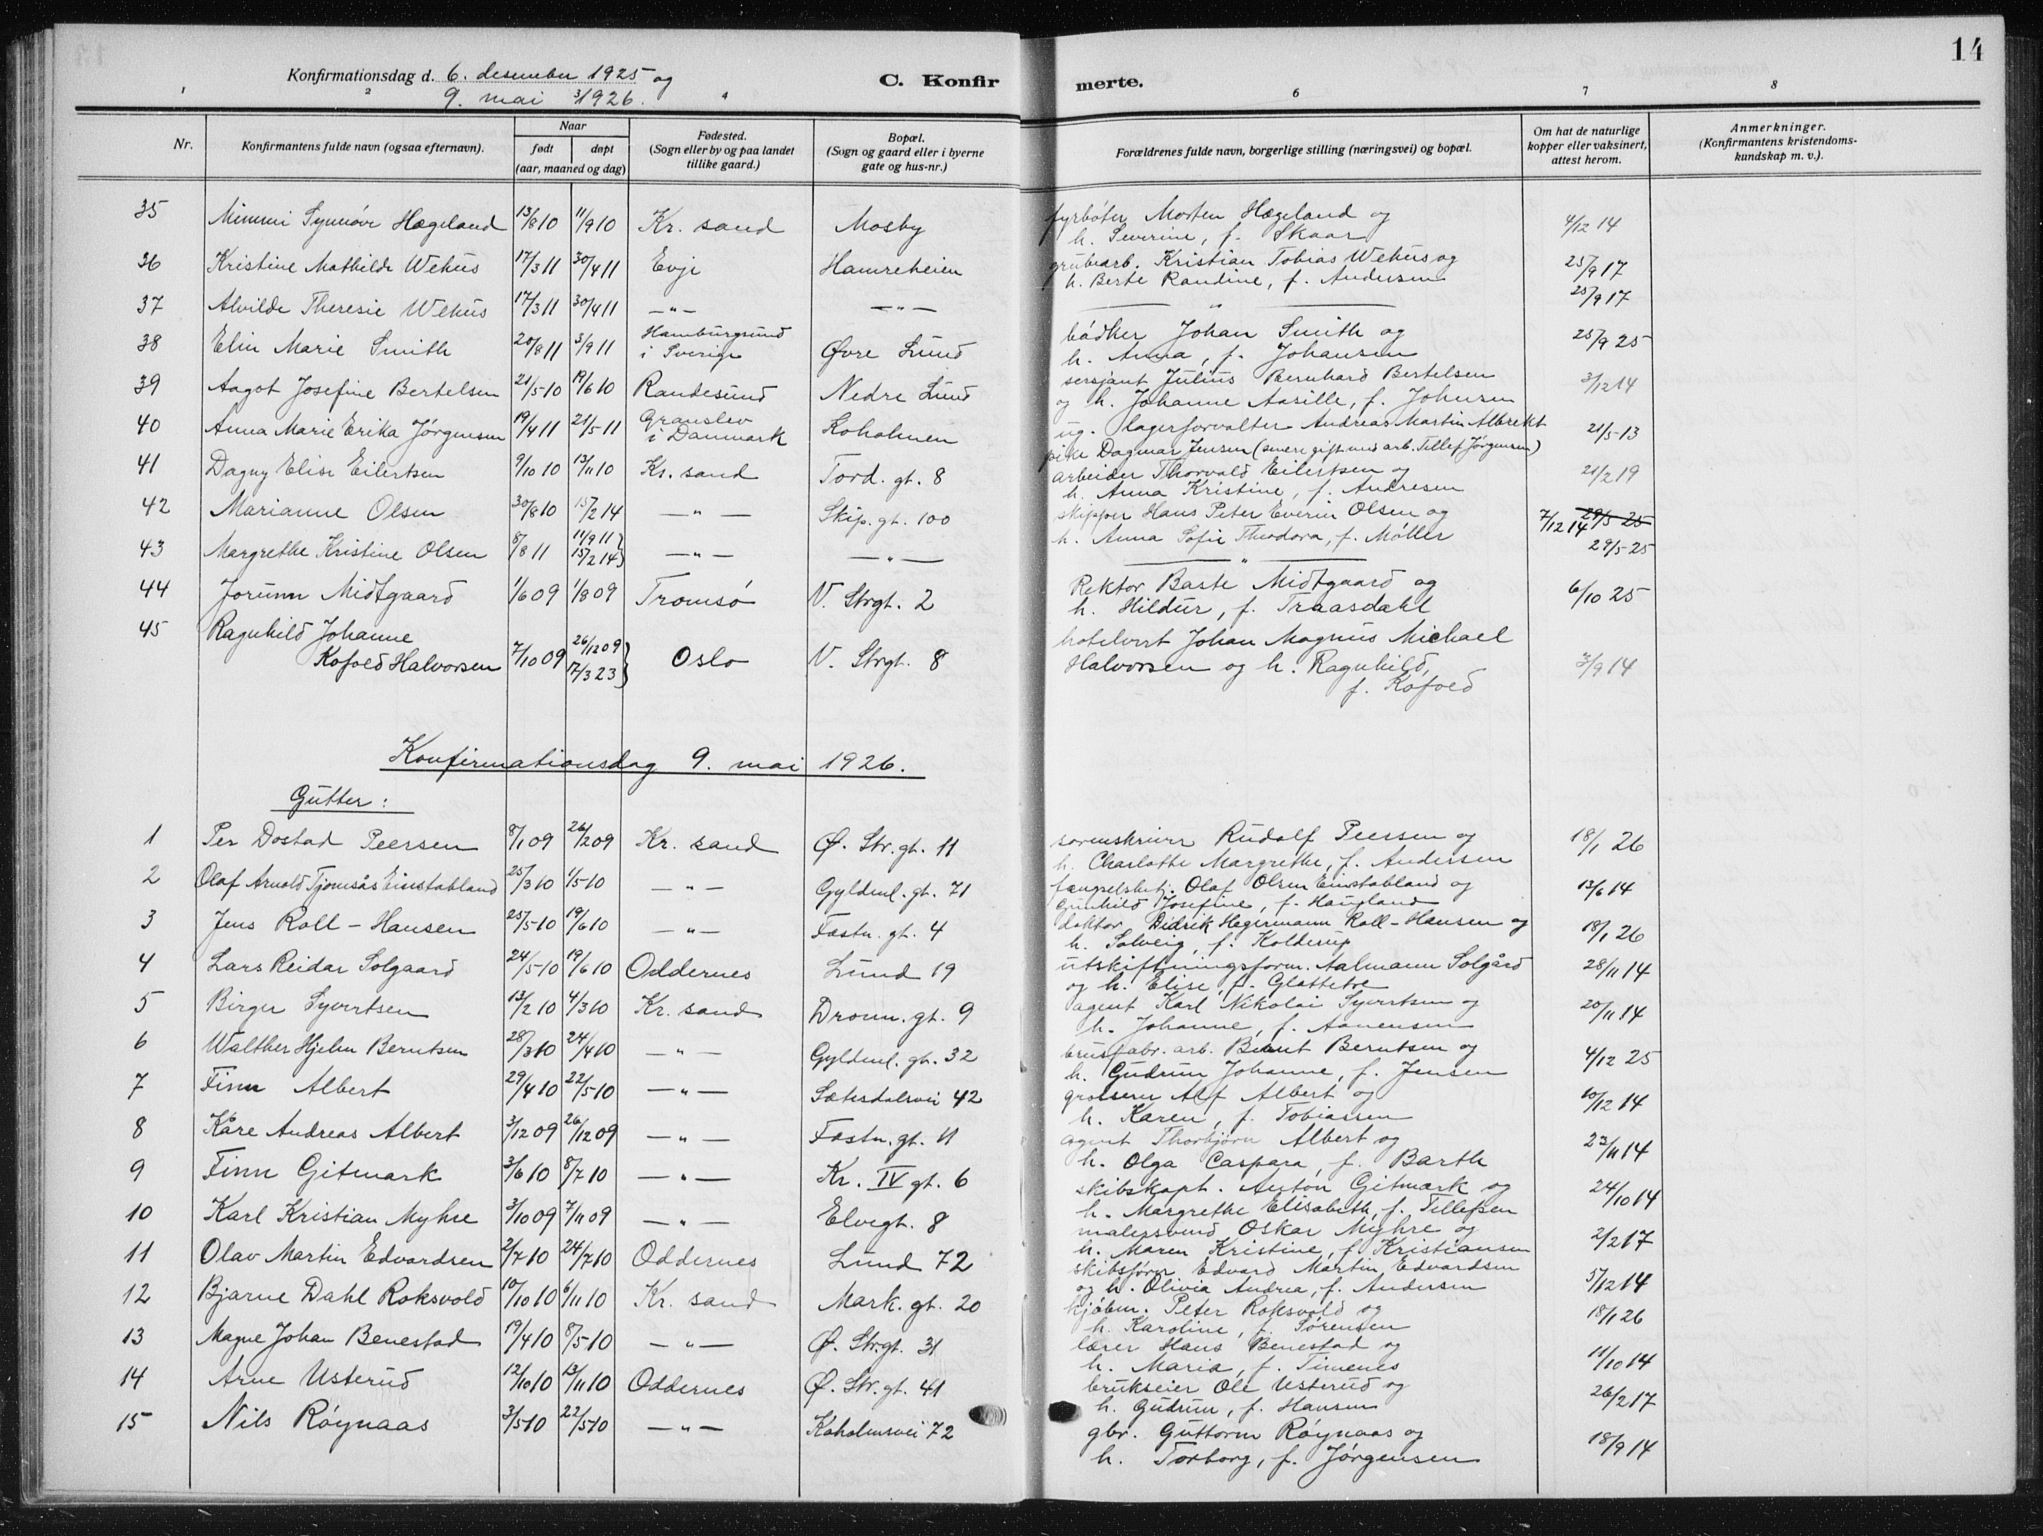 14
Konfirmationsdag d. 6. desember 1925 og
9. mai 1926.
C. Konfir
merte.
1 2 4 6 7 8
Nr.
Konfirmantens fulde navn (ogsaa efternavn).
Naar
født døpt
(aar, maaned og dag)
Fødested.
(Sogn eller by og paa landet
tillike gaard.)
Bopæl.
(Sogn og gaard eller i byerne
gate og hus-nr.)
Forældrenes fulde navn, borgerlige stilling (næringsvei) og bopæl.
Om hat de naturlige
kopper eller vaksinert,
attest herom.
Anmerkninger.
(Konfirmantens kristendoms-
kundskap m. v.).
35 Mimmi Synnøve Hægeland 13/8 10 11/9 10 Kr. sand Mosby fyrbøter Morten Hægeland og 4/12 14
h. Severine, f. Skaar
36 Kristine Mathilde Wehus 17/3 11 30/4 11 Evje Hamreheien grubearb. Kristian Tobias Wehus og 25/9 17
h. Berte Randine, f. Andersen
37 Alvilde Theresie Wehus 17/3 11 30/4 11 —"— —"— —"— 25/9 17
38 Elin Marie Smith 20/8 11 3/9 11 Hamburgsund Øvre Lund bødker Johan Smith og 25/9 25
i Sverige h. Anna, f. Johansen
39 Aagot Josefine Bertelsen 21/5 10 19/6 10 Randesund Nedre Lund sersjant Julius Bernhard Bertelsen 3/12 14
og h. Johanne Aasille, f. Johnsen
40 Anna Marie Erika Jørgensen 19/4 11 21/5 11 Granslev Koholmen ug. lagerforvalter Andreas Martin Albrekt 21/5 13
i Danmark pike Dagmar Jensen (senere gift med arb. Tellef Jørgensen)
41 Dagny Elise Eilertsen 9/10 10 13/11 10 Kr. sand Tord. gt. 8 arbeider Thorvald Eilertsen og 21/2 19
h. Anna Kristine, f. Andresen
42 Marianne Olsen 30/8 10 15/2 14 —"— Skip. gt. 100 skipper Hans Peter Everin Olsen og 7/12 14 29/5 25
h. Anna Sofie Theodora, f. Møller
43 Margrethe Kristine Olsen 8/8 11 11/9 11 15/2 14 —"— —"— —"— 29/5 25
44 Jorunn Midtgaard 1/6 09 1/8 09 Tromsø V. Strgt. 2 Rektor Baste Midtgaard og 6/10 25
h. Hildur, f. Traasdahl
45 Ragnhild Johanne 26/12 09 hotelvert Johan Magnus Michael
Kofoed Halvorsen 7/10 09 17/3 23 Oslo V. Strgt. 8 Halvorsen og h. Ragnhild, 3/9 14
f. Kofoed
Konfirmationsdag 9. mai 1926.
Gutter:
1 Per Dostad Peersen 8/1 09 26/2 09 Kr. sand Ø. Str. gt. 11 sorenskriver Rudolf Peersen og 18/1 26
h. Charlotte Margrethe, f. Andersen
2 Olaf Arnold Tjomsås Einstabland 25/3 10 1/5 10 —"— Gyldenl. gt. 71 fængselsbetj. Olaf Olsen Einstabland og 13/6 14
Gunhild Josefine, f. Haugland
3 Jens Roll-Hansen 25/5 10 19/6 10 —"— Fæstn. gt. 4 doktor Didrik Hegermann Roll-Hansen og 18/1 26
h. Solveig, f. Kolderup
4 Lars Reidar Solgaard 24/5 10 19/6 10 Oddernes Lund 19 utskiftningsform. Aalmann Solgård 28/11 14
og h. Elise, f. Glattetre
5 Birger Syvertsen 13/2 10 4/3 10 Kr. sand Dronn. gt. 9 agent Karl Nikolai Syvertsen og 20/11 14
h. Johanne, f. Aanensen
6 Walther Hjelm Berntsen 28/3 10 24/4 10 —"— Gyldenl. gt. 32 brusfabr. arb. Bernt Berntsen og 4/12 25
h. Gudrun Johanne, f. Jensen
7 Finn Albert 29/4 10 22/5 10 —"— Sætesdalsvei 42 grosserer Alf Albert og 10/12 14
h. Karen, f. Tobiassen
8 Kåre Andreas Albert 3/12 09 26/12 09 —"— Fæstn. gt. 11 agent Thorbjørn Albert og 23/11 14
h. Olga Caspara, f. Barth
9 Finn Gitmark 3/6 10 8/7 10 —"— Kr. IV gt. 6 skibskapt. Anton Gitmark og 24/10 14
h. Margrethe Elisabeth, f. Tellefsen
10 Karl Kristian Myhre 3/10 09 7/11 09 —"— Elvegt. 8 malersvend Oskar Myhre og 2/2 17
h. Maren Kristine, f. Kristiansen
11 Olav Martin Edvardsen 2/7 10 24/7 10 Oddernes Lund 72 skibsfører Edvard Martin Edvardsen 5/12 14
og h. Olivia Andrea, f. Andersen
12 Bjarne Dahl Roksvold 10/10 10 6/11 10 Kr. sand Mark. gt. 20 kjøbm. Peter Roksvold og 18/1 26
h. Karoline, f. Sørensen
13 Magne Johan Benestad 19/4 10 8/5 10 —"— Ø. Strgt. 31 lærer Hans Benestad og 11/10 14
h. Maria, f. Timenes
14 Arne Usterud 12/10 10 13/11 10 Oddernes Ø. Str. gt. 41 brukseier Ole Usterud og 26/2 17
h. Gudrun, f. Hansen
15 Nils Røynaas 3/5 10 22/5 10 —"— Koholmsvei 72 gbr. Guttorm Røynaas og 18/9 14
h. Torborg, f. Jørgensen